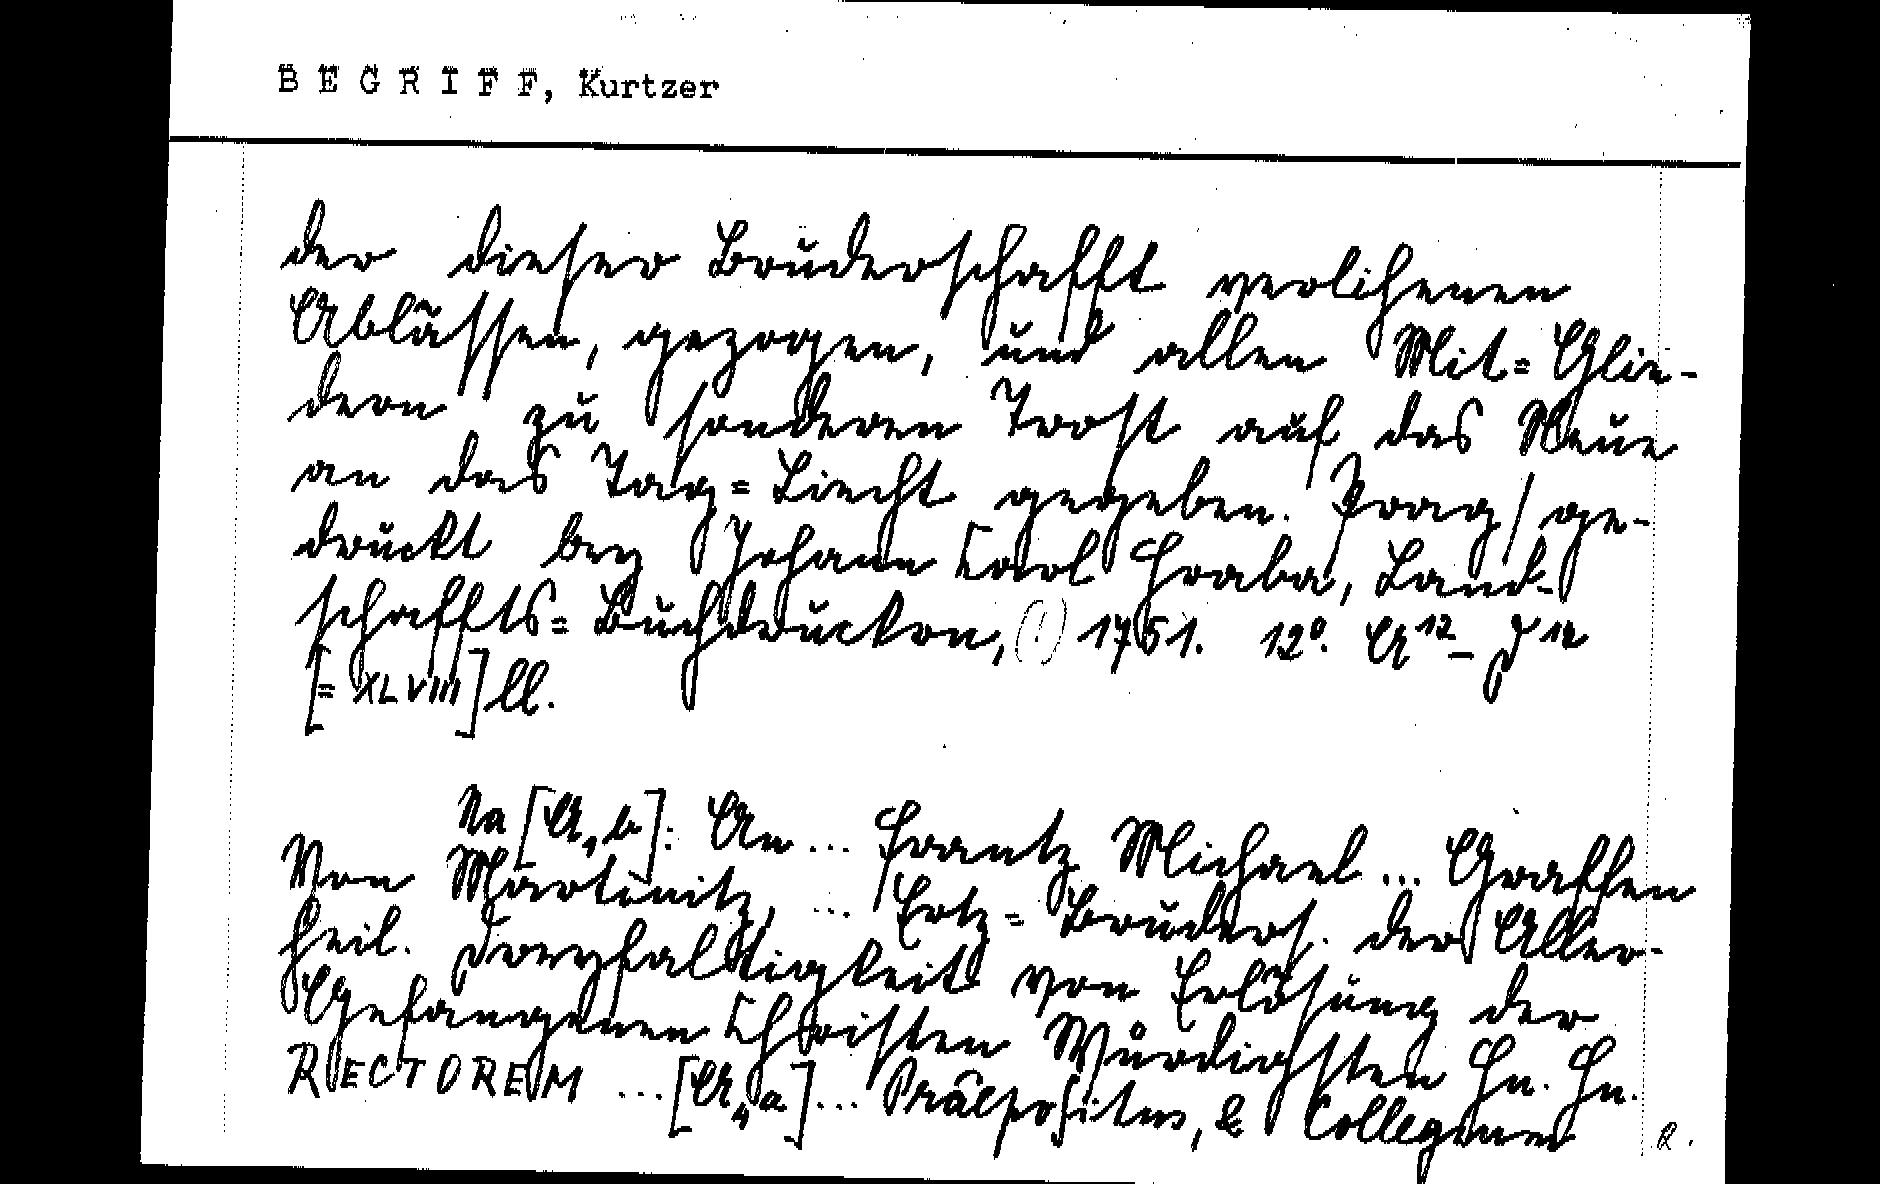 BEGRIFF, Kurtzer
der dieser Bruderschafft verlihenen
Ablässen, gezogen, und allen Mit=Glie-
dern zu sonderen Trost auf das Neue
an das Tag=Liecht gegeben. Prag/ ge-
druckt bey Johann Carl Hraba, Land-
schaffts=Buchdruckrn, (!) 1751. 12°. A12–D12
[= XLVIII] ll.
Na [A1b]: An ... Frantz Michael ... Graffen
Von Martinitz, ... Ertz=Bruders. der Aller-
heil. Dreyfaltigkeit von Erlösung der
Gefangenen Christen Würdigsten Hn. Hn.
RECTOREM ... [A4a] ... Praepositus, & Collegium
R.